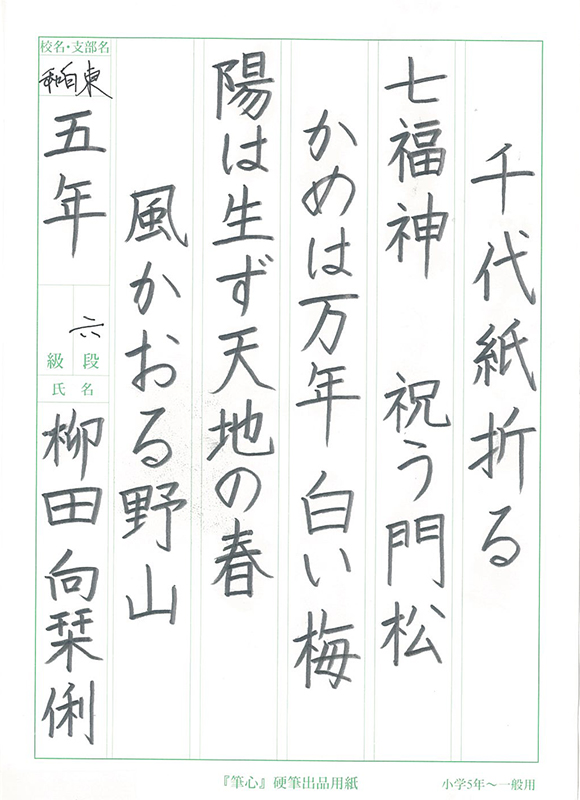 千代紙折る
七福神 祝う門松
かめは万年 白い梅
陽は生ず天地の春
風かおる野山
校名・支部名
和白東
五年
段
六
級
氏名
柳田向栞俐
『筆心』硬筆出品用紙
小学5年～一般用